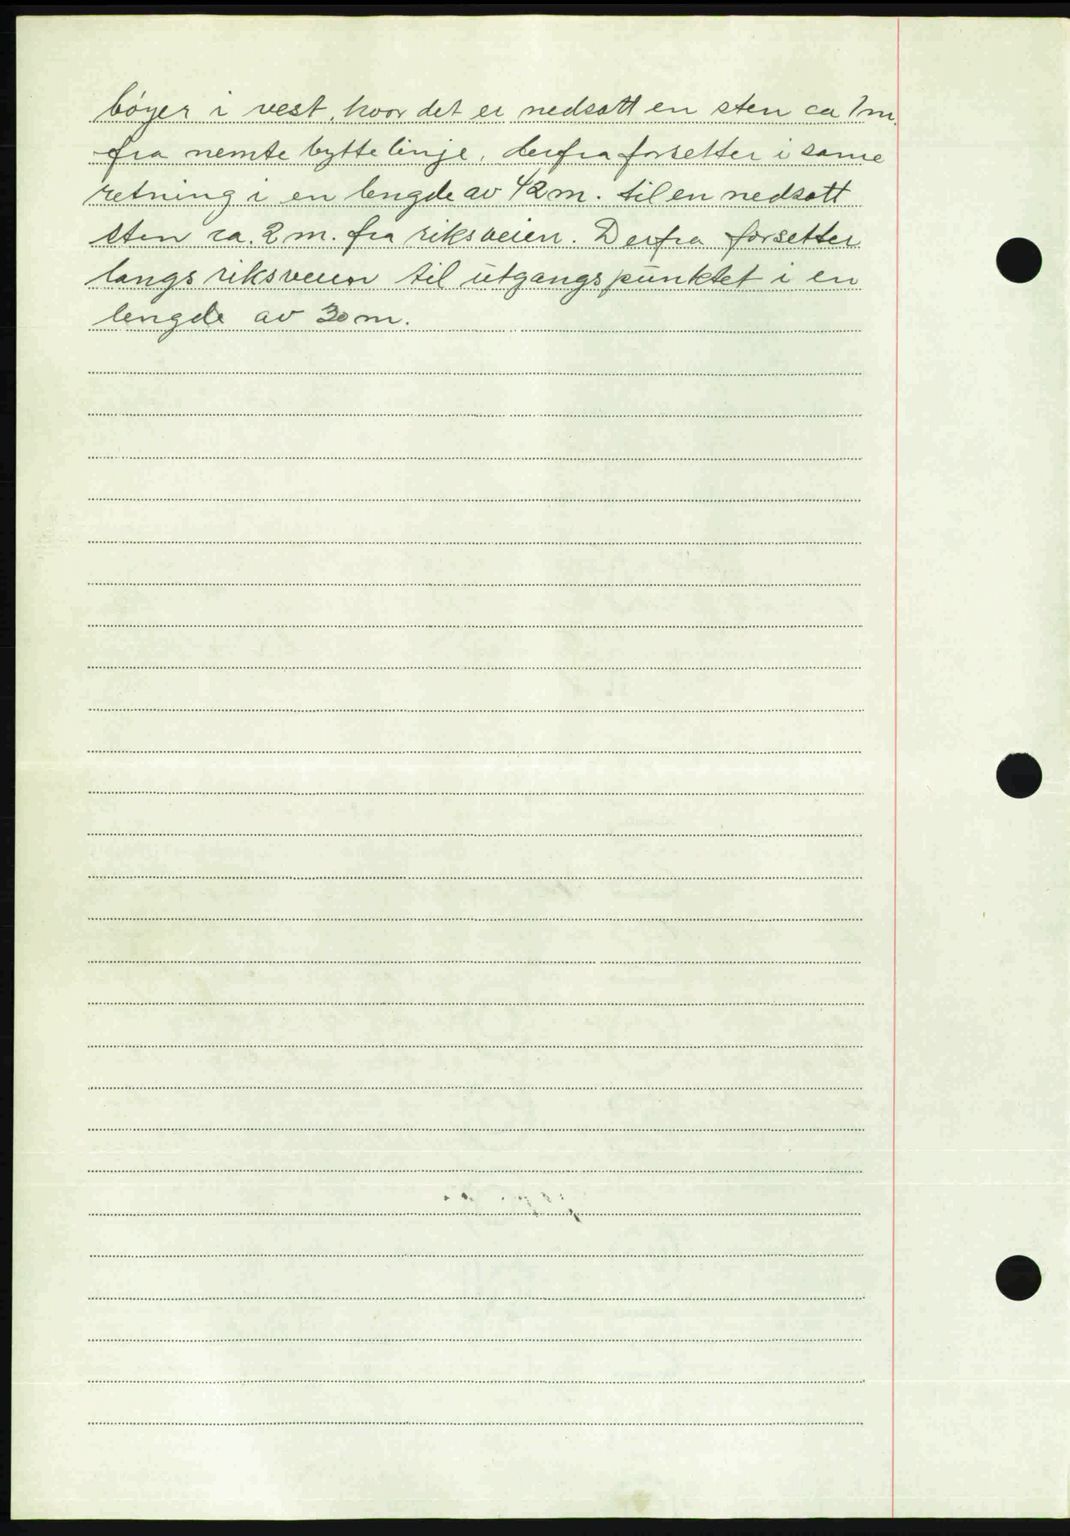 bøyer i vest, hvor det er nedsatt en sten ca 1m.
fra nemte byttelinje, derfra forsetter i same
retning i en lengde av 42m. til en nedsatt
sten ca. 2m. fra riksveien. Derfra forsetter
langs riksveien til utgangspunktet i en
lengde av 30m.